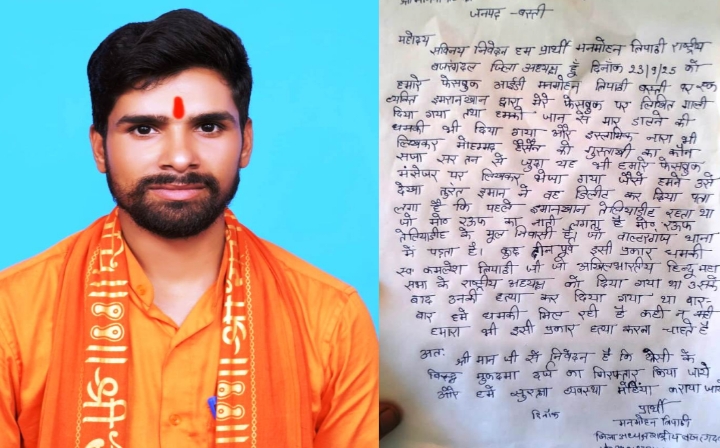 जनपद - बस्ती
महोदय
सविनय निवेदन हम प्रार्थी मनमोहन त्रिपाठी राष्ट्रीय
बजरंगदल जिला अध्यक्ष हूँ दिनाँक 23/9/25 को
हमारे फेसबुक आईडी मनमोहन त्रिपाठी बस्ती पर एक
व्यक्ति इमरानखान द्वारा मेरे फेसबुक पर लिखित गाली
दिया गया तथा धमकी जान से मार डालने की
धमकी भी दिया गया और इस्लामिक नारा भी
लिखकर मोहम्मद की गुस्ताखी का कौन
सजा सर तन से जुदा यह भी हमारे फेसबुक
मैसेंजर पर लिखकर भेजा गया जैसे हमने उसे
देखा तुरंत इमरान ने वह डिलीट कर दिया पता
लगा है कि पहले इमरानखान तेलियाडीह रहता था
जो मो० रऊफ का नाती लगता है मो० रऊफ
तेलियाडीह के मूल निवासी है। जो वाल्टरगंज थाना
में पड़ता है। कुछ दीन पूर्व इसी प्रकार धमकी
स्व कमलेश तिवारी जी जो अखिलभारतीय हिन्दू महा
सभा के राष्ट्रीय अध्यक्ष को दिया गया था उसके
बाद उनकी हत्या कर दिया गया था बार-
बार हमें धमकी मिल रही है कही न कही
हमारा भी इसी प्रकार हत्या करना चाहते है
अतः श्री मान जी से निवेदन है कि दोसी के
विरुद्ध मुकदमा दर्ज का गिरफ्तार किया जाये
और हमे सुरक्षा व्यवस्था कराया जाये
प्रार्थी
दिनांक
मनमोहन त्रिपाठी
जिला अध्यक्ष राष्ट्रीय